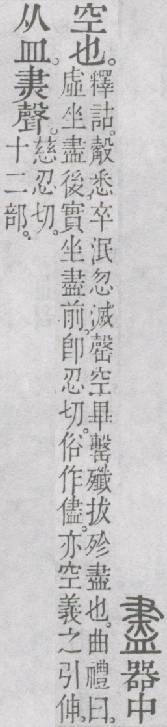 盡 器中
空也。
釋詁。觳悉卒泯忽滅罄空畢罊殲拔殄盡也。曲禮曰。
虛坐盡後實坐盡前。卽忍切。俗作儘。亦空義之引伸。
从皿。㶳聲。
慈忍切。
十二部。